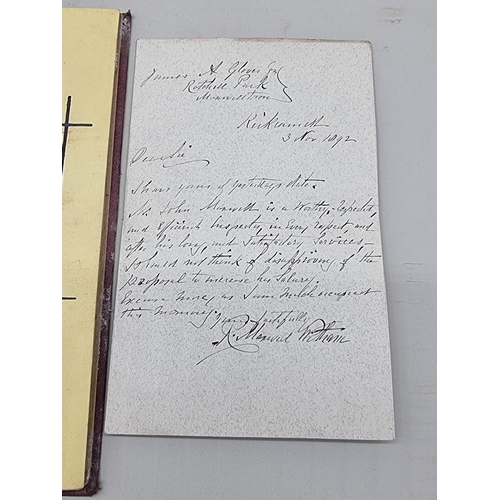 James A. Glover Esq
Rotchell Park
Maxwelltown
Kirkconnell
3 Nov. 1892
Dear Sir
I have yours of Yesterdays date.
Mr. John Maxwell is a Worthy, Respected,
and Efficient Inspector, in Every respect, and
after his long, and Satisfactory Services—
I should not think of disapproving of the
proposal to increase his Salary.
Excuse more, as I am
this morning.
Yours faithfully
R. Maxwell Witham